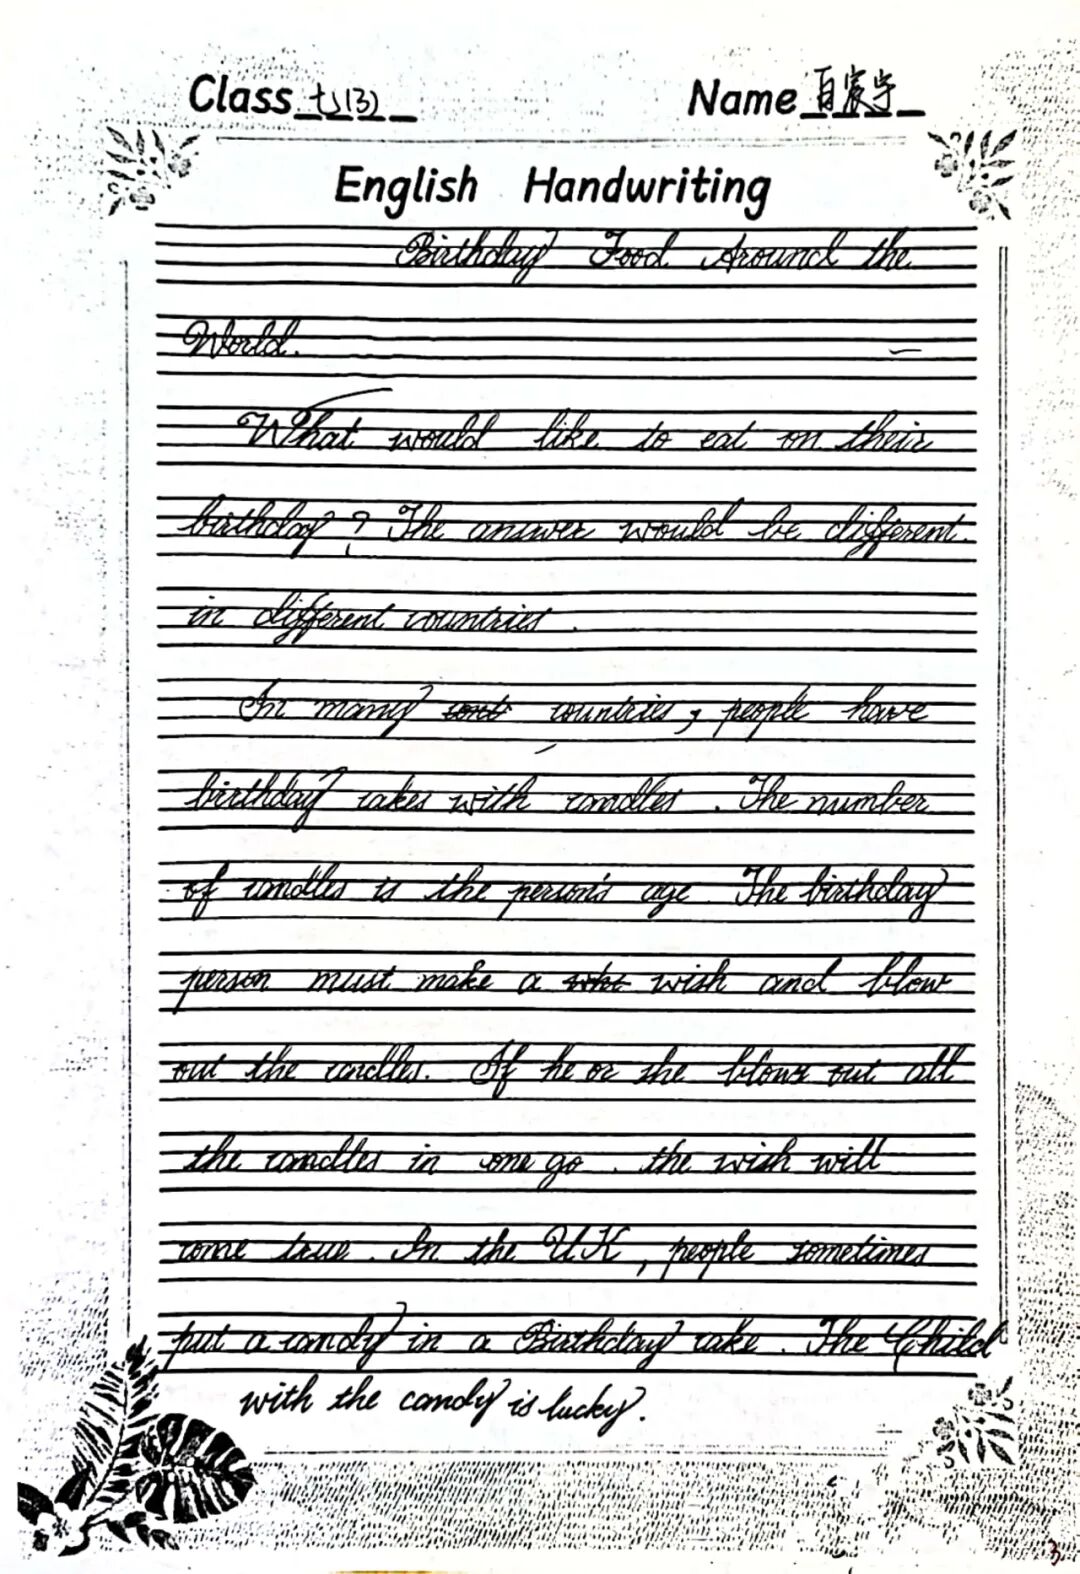 Class 七(13)
Name 百宸宇
English Handwriting
Birthday Food Around the
World.
What would like to eat on their
birthday? The answer would be different
in different countries.
In many countries, people have
birthday cakes with candles. The number
of candles is the person's age. The birthday
person must make a wish and blow
out the candles. If he or she blows out all
the candles in one go. the wish will
come true. In the UK, people sometimes
put a candy in a Birthday cake. The Child
with the candy is lucky.
3